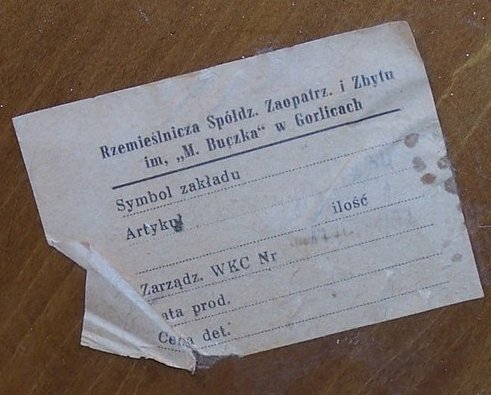 Rzemieślnicza Spółdz. Zaopatrz. i Zbytu
im, „M. Buczka" w Gorlicach
Symbol zakładu
Artykuł ilość
Zarządz. WKC Nr
ata prod.
Cena det.